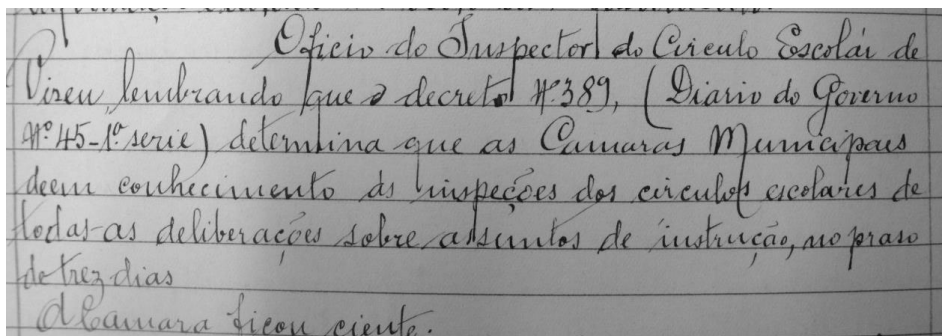 Oficio do Inspector do Circulo Escolár de
Viseu, lembrando que o decreto Nº 389, (Diario do Governo
Nº 45-1ª serie) determina que as Camaras Municipaes
deem conhecimento ás inspeções dos circulos escolares de
todas as deliberações sobre assuntos de instrução, no praso
de trez dias
A Camara ficou ciente.